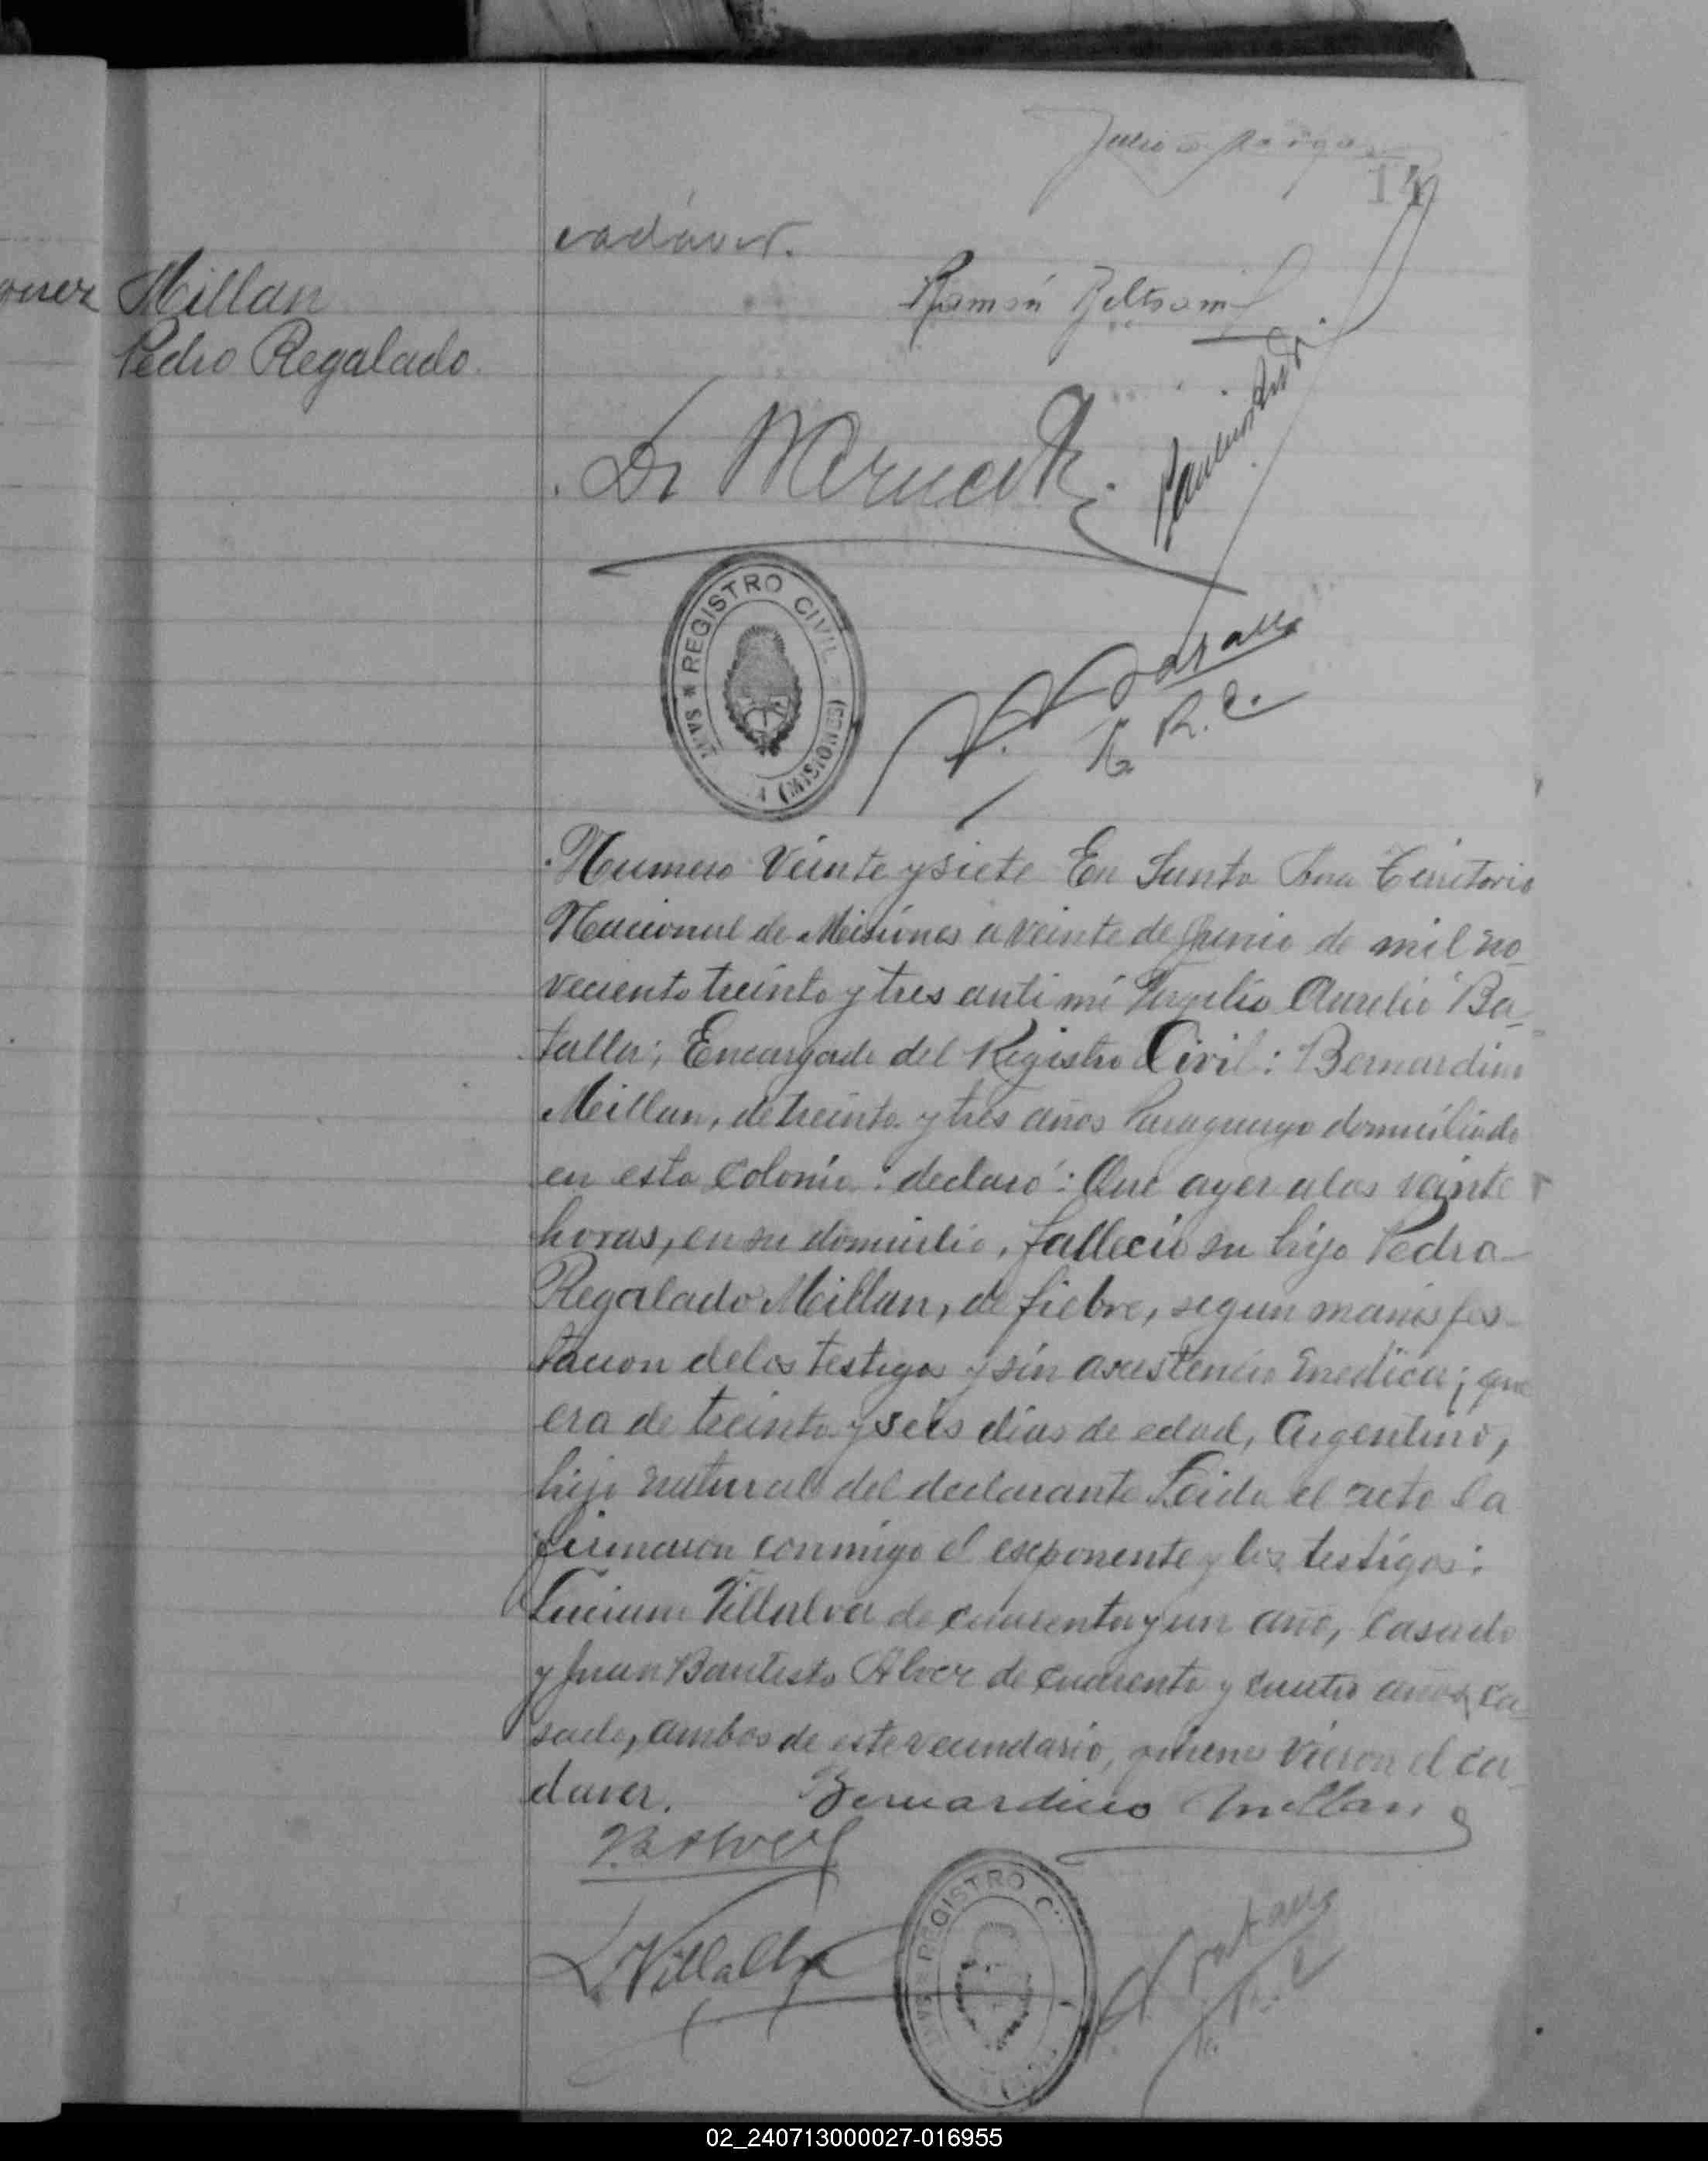 14
cadáver.
Millan
Pedro Regalado.
Ramón Beltram
Dr
REGISTRO CIVIL
SANTA
(MISIONES)
E. R. C.
Numero Veinte y siete En Santa Ana Territorio
Nacional de Misiones a veinte de Junio de mil no-
veciento treinta y tres anti mi Virgilio Aurelio Ba-
talla; Encargado del Registro Civil: Bernardino
Millan, de treinta y tres años Paraguayo domiciliado
en esta Colonia: declaró: Que ayer a las vainte
horas, en su domicilio, fallecio su hijo Pedro
Regalado Millan, de fiebre, segun manisfes-
tacion de los testigos y sin asistencia medica; que
era de treinta y seis dias de edad, Argentino,
hijo natural del declarante Leida el acta la
firmaron conmigo el exponente y los testigos:
Luciano Villalva de cuarenta y un año, Casado
y Juan Bautista Alvez de cuarenta y cuatro años, ca-
sado, ambos de este vecindario, quienes vieron el ca-
daver. Bernardino Millan
J. B. Alvez
L. Villalba
REGISTRO C
E. R. C
02_240713000027-016955